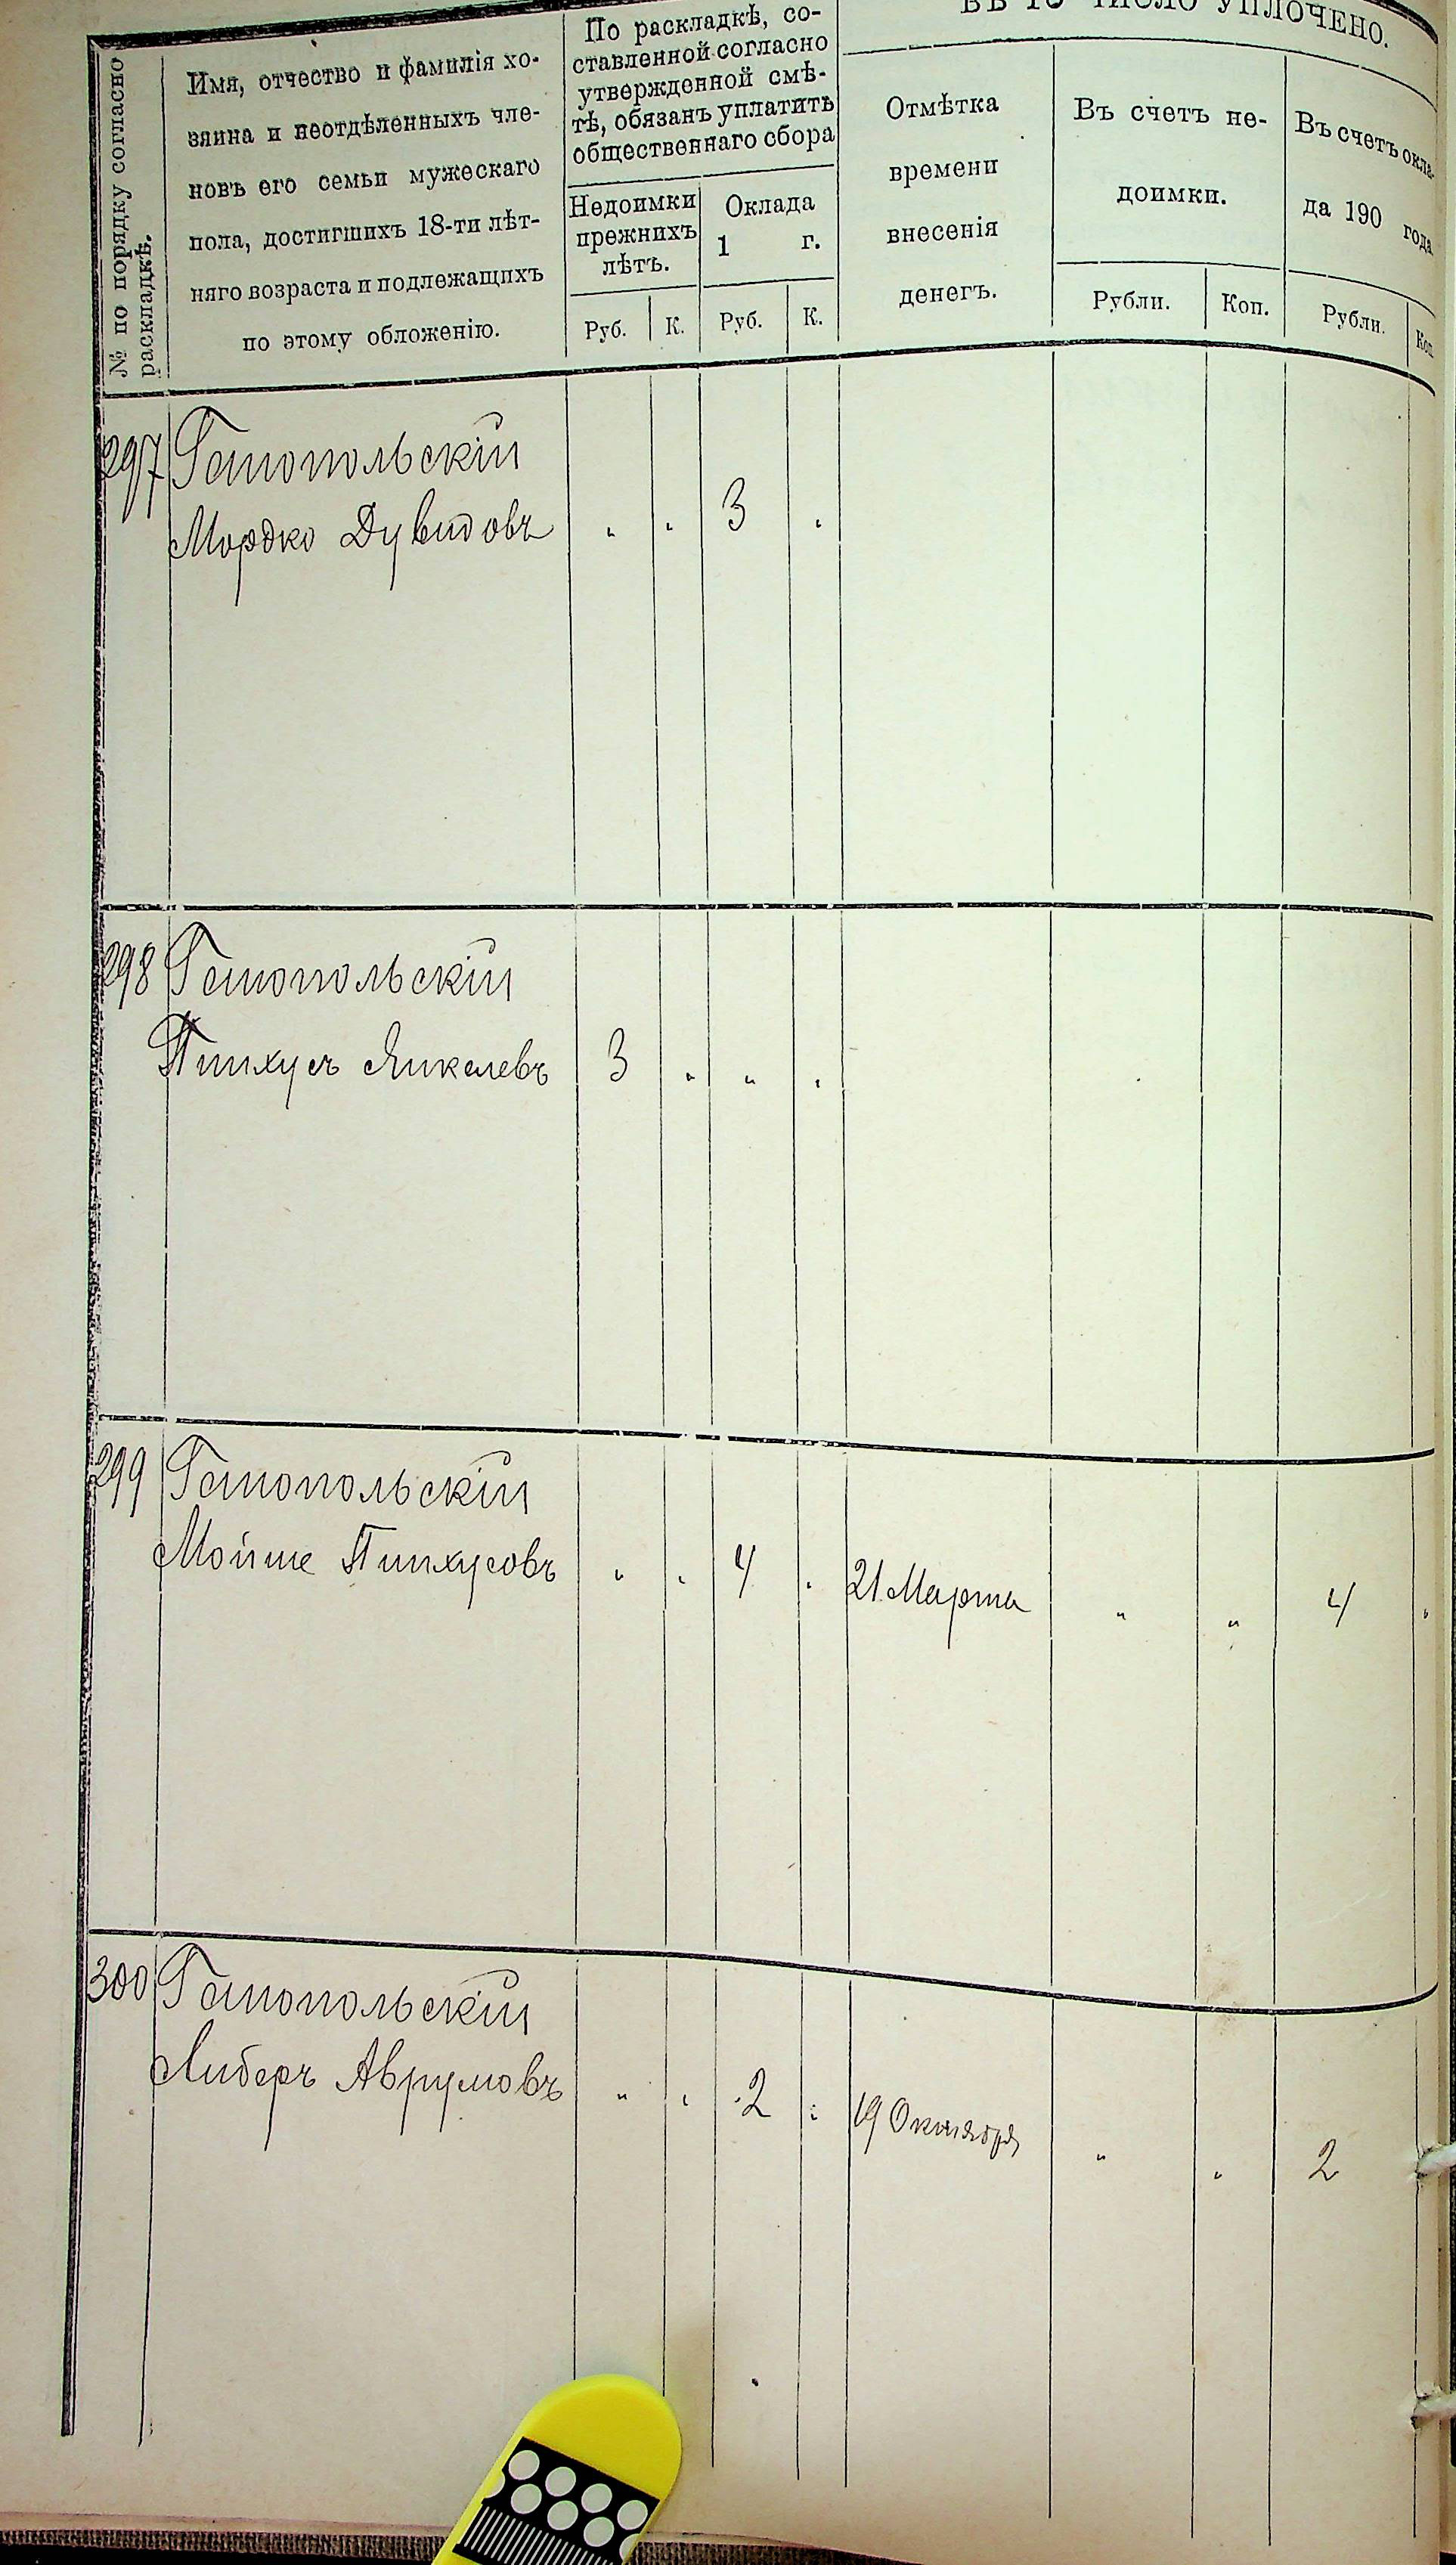 ВЪ ТО ЧИСЛО УПЛОЧЕНО.
№ по порядку согласно
раскладкѣ.
Имя, отчество и фамилія хо-
зяина и неотдѣленныхъ чле-
новъ его семьи мужескаго
пола, достигшихъ 18-ти лѣт-
няго возраста и подлежащихъ
по этому обложенію.
По раскладкѣ, со-
ставленной согласно
утвержденной смѣ-
тѣ, обязанъ уплатить
общественнаго сбора
Недоимки
прежнихъ
лѣтъ.
Оклада
1 г.
Отмѣтка
времени
внесенія
денегъ.
Въ счетъ не-
доимки.
Въ счетъ окла-
да 190 года
Руб. К. Руб. К. Рубли. Коп. Рубли. Коп.
297 Гайопольскій
Мордко Дувидовъ " " 3 "
298 Гайопольскій
Пинхусъ Янкелевъ 3 " " "
299 Гайопольскій
Мойше Пинхусовъ " " 4 " 21 Марта " " 4 "
300 Гайопольскій
Либеръ Аврумовъ " " 2 " 19 Октября " " 2